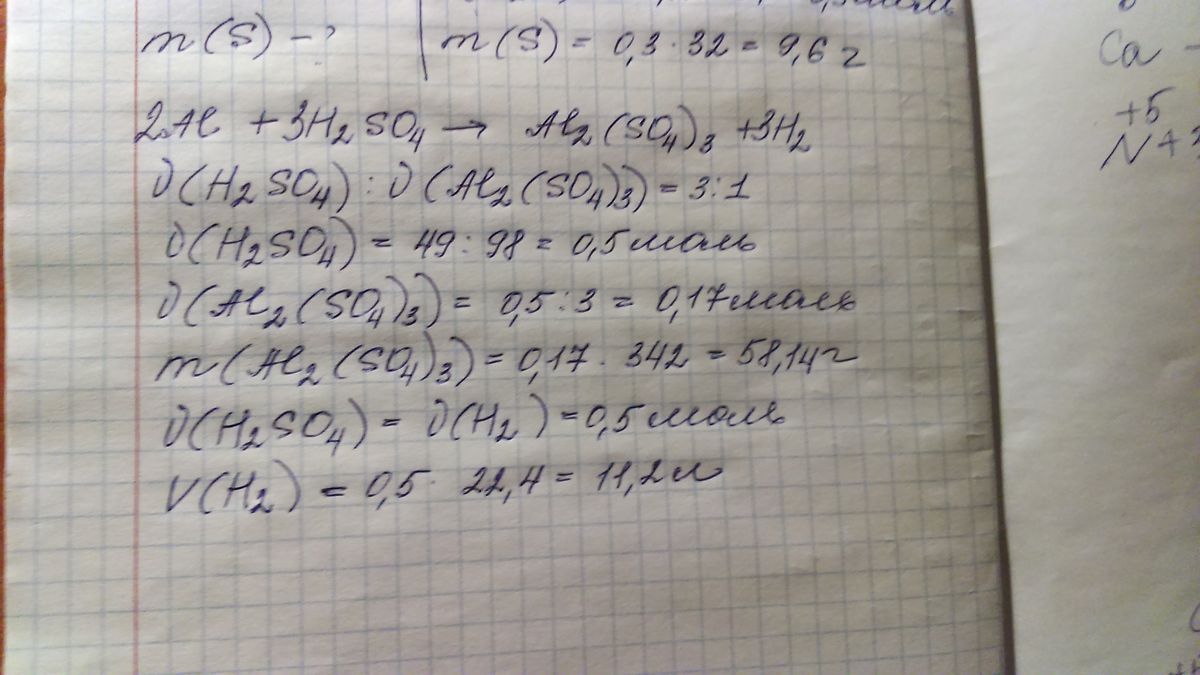 m(S) - ? m(S) = 0,3 · 32 = 9,6 г
2Al + 3H₂SO₄ → Al₂(SO₄)₃ + 3H₂
ν(H₂SO₄) : ν(Al₂(SO₄)₃) = 3 : 1
ν(H₂SO₄) = 49 : 98 = 0,5 моль
ν(Al₂(SO₄)₃) = 0,5 : 3 = 0,17 моль
m(Al₂(SO₄)₃) = 0,17 · 342 = 58,14 г
ν(H₂SO₄) = ν(H₂) = 0,5 моль
V(H₂) = 0,5 · 22,4 = 11,2 л
Ca -
+5
N +